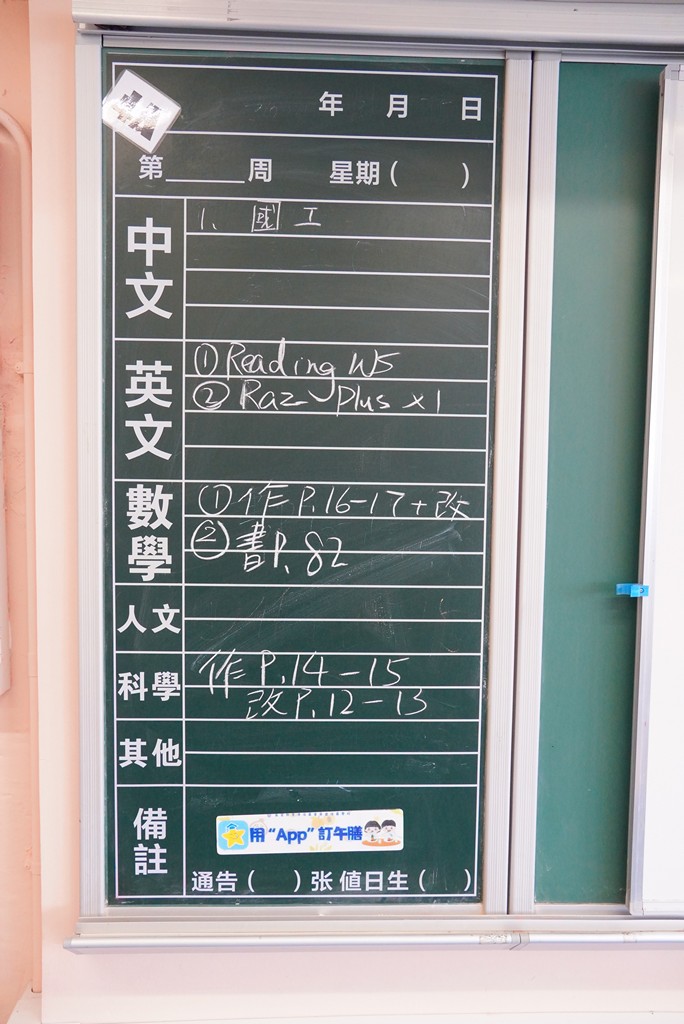 年 月 日
第______周 星期( )
中文
1. 國 工
英文
① Reading WS
② Raz Plus x1
數學
① 作 P.16-17+改
② 書 P.82
人文
科學
作 P.14-15
改 P.12-13
其他
備註
用“App”訂午膳
通告( )张 值日生( )